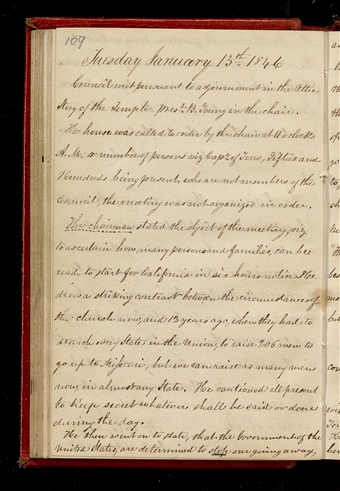 109
Tuesday January 13th 1846
Council met pursuant to adjournment in the Attic
Story of the Temple Prest. B. Young in the chair.
The house was called to order by the chair at 11 o'clock
A.M. a number of persons viz Capts of Tens, Fifties and
Hundreds being present, who are not members of the
Council, the meeting was not organized in order.
The chairman stated the object of the meeting, viz
to ascertain how many persons and families, can be
ready to start for California in six hours notice. He
drew a striking contrast between the circumstances of
the church now, and 13 years ago, when they had to
search every State in the Union, to raise 205 men to
go up to Missouri; but we can raise as many men
now, in almost any State. He cautioned all present
to keep secret whatever shall be said or done
during the day.
He then went on to state, that the Government of the
United States, are determined to stop our going away,